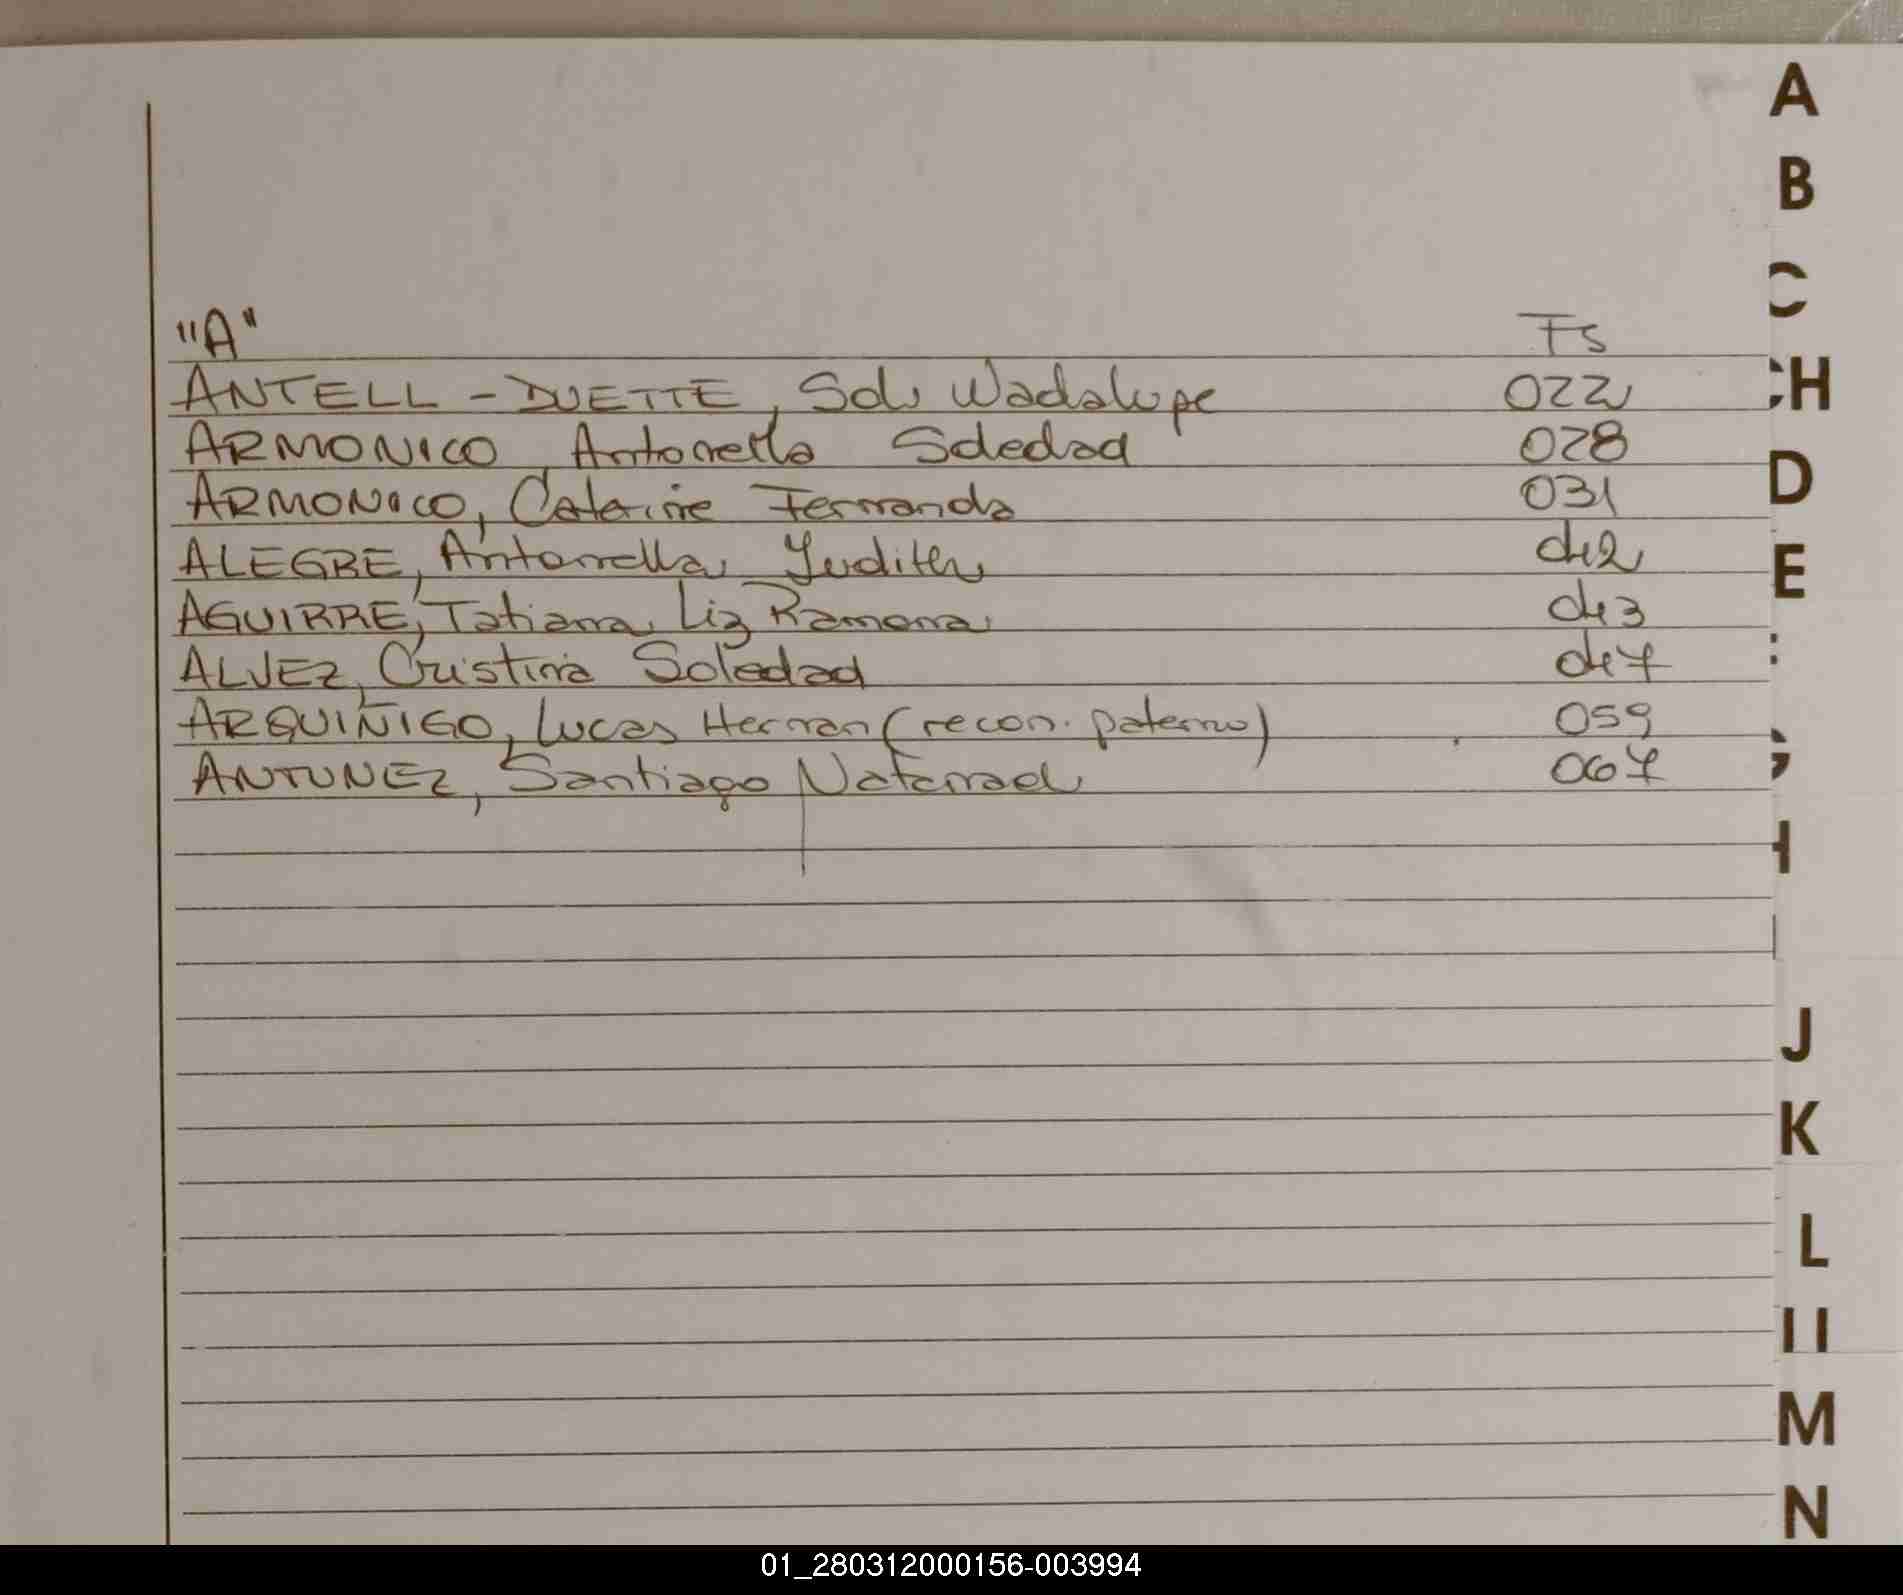 "A" Fs
ANTELL - DUETTE, Sol Wadalupe 022
ARMONICO, Antonella Soledad 028
ARMONICO, Caterine Fernanda 031
ALEGRE, Antonella Judith 042
AGUIRRE, Tatiana Liz Ramona 043
ALVEZ, Cristina Soledad 047
ARQUIÑIGO, Lucas Hernan (recon. paterno) 059
ANTUNEZ, Santiago Natanael 067
A
B
C
CH
D
E
G
H
I
J
K
L
Ll
M
N
01_280312000156-003994